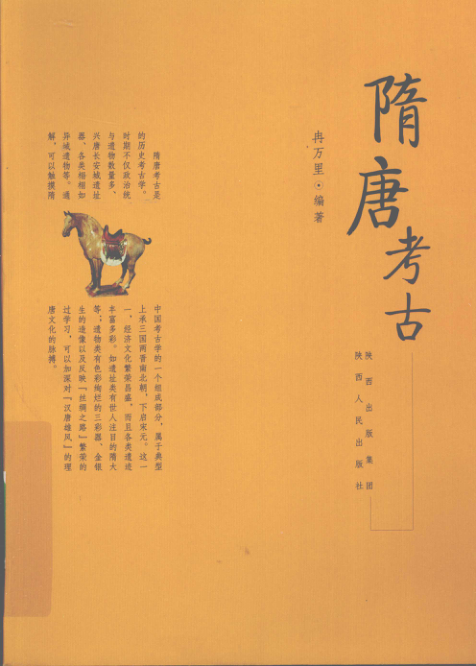 隋唐考古
冉万里·编著
陕西出版集团
陕西人民出版社
隋唐考古是
中国考古学的一个组成部分，属于典型
的历史考古学。
上承三国两晋南北朝，下启宋元。这一
时期不仅政治统
一，经济文化繁荣昌盛，而且各类遗迹
与遗物数量多、
丰富多彩。如遗址类有世人注目的隋大
兴唐长安城遗址
等；遗物类有色彩绚烂的三彩器、金银
器、各类栩栩如
生的造像以及反映“丝绸之路”繁荣的
异域遗物等。通
过学习，可以加深对“汉唐雄风”的理
解，可以触摸隋
唐文化的脉搏。